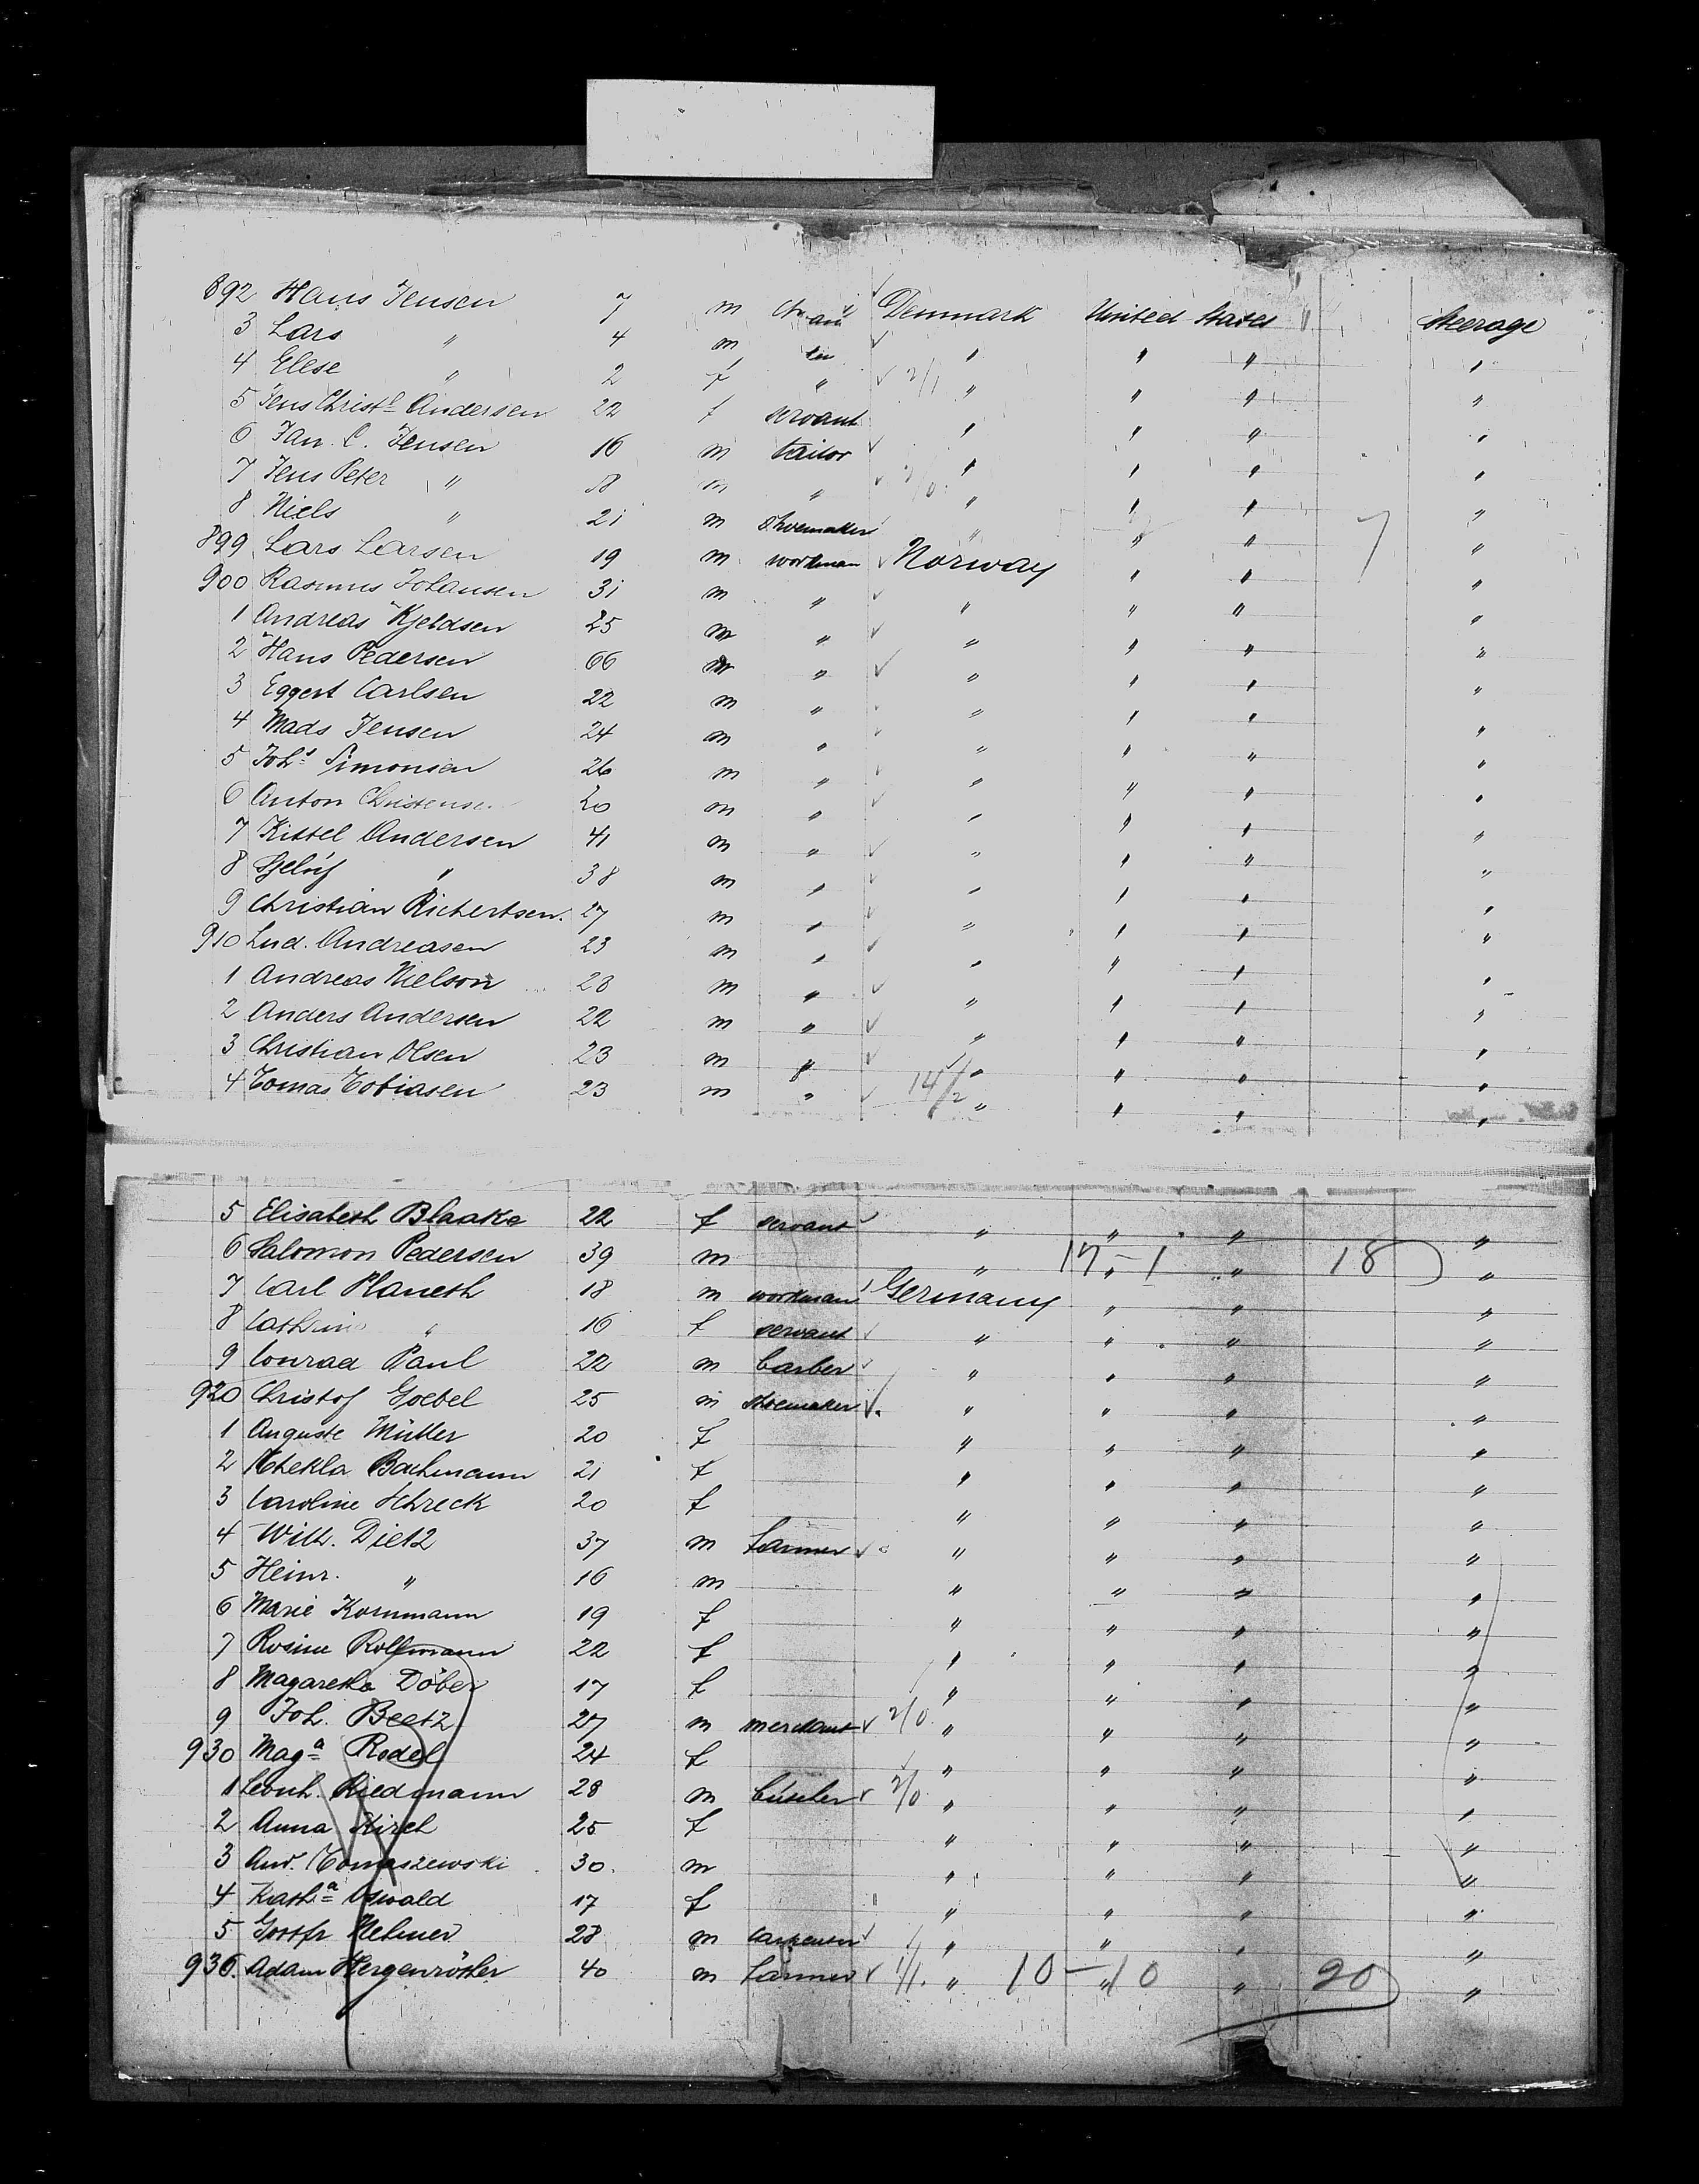 892 Hans Jensen 7 m Denmark United States Steerage
3 Lars " 4 m " " " "
4 Elese " 2 f " 2/1 " " " "
5 Jens Christ. Andersen 22 f servant " " " "
6 Jan. C. Jensen 16 m tailor " " " "
7 Jens Peter " 18 m " " " " "
8 Niels " 21 m shoemaker " " " 7 "
899 Lars Larsen 19 m workman Norway " " "
900 Rasmus Johansen 31 m " " " " "
1 Andreas Kjeldsen 25 m " " " " "
2 Hans Pedersen 66 m " " " " "
3 Eggert Carlsen 22 m " " " " "
4 Mads Jensen 24 m " " " " "
5 Johs Simonsen 26 m " " " " "
6 Anton Christensen 20 m " " " " "
7 Kittel Andersen 41 m " " " " "
8 " 38 m " " " " "
9 Christian Richertsen. 27 m " " " " "
910 Lud. Andreasen 23 m " " " " "
1 Andreas Nielson 28 m " " " " "
2 Anders Andersen 22 m " " " " "
3 Christian Olsen 23 m " " " " "
4 Tomas Tobiasen 23 m " 14/2 " " " "
5 Elisabeth Blaake 22 f servant " " " "
6 Salomon Pedersen 39 m " 17-1 " " 18 "
7 Carl Planeth 18 m workman Germany " " "
8 Cathrine " 16 f servant " " " "
9 Conrad Paul 22 m barber " " " "
920 Christof Goebel 25 m shoemaker " " " "
1 Auguste Müller 20 f " " " "
2 Thekla Bachmann 21 f " " " "
3 Caroline Schreck 20 f " " " "
4 Wilh. Dietz 37 m farmer " " " "
5 Heinr. " 16 m " " " "
6 Marie Kornmann 19 f " " " "
7 Rosine Rollmann 22 f " " " "
8 Magaretha Döber 17 f " " " "
9 Joh. Beetz 27 m merchant 2/0 " " " "
930 Maga Rodel 24 f " " " "
1 Leonh. Riedmann 28 m butcher 2/0 " " " "
2 Anna Kirch 25 f " " " "
3 And. Tomaszewski 30. m " " " "
4 Katha Oswald 17 f " " " "
5 Gottfr. Nehmer 28 m carpenter " " " "
936. Adam Hergenröther 40 m farmer 1/1. " 10-10 " " 20 "